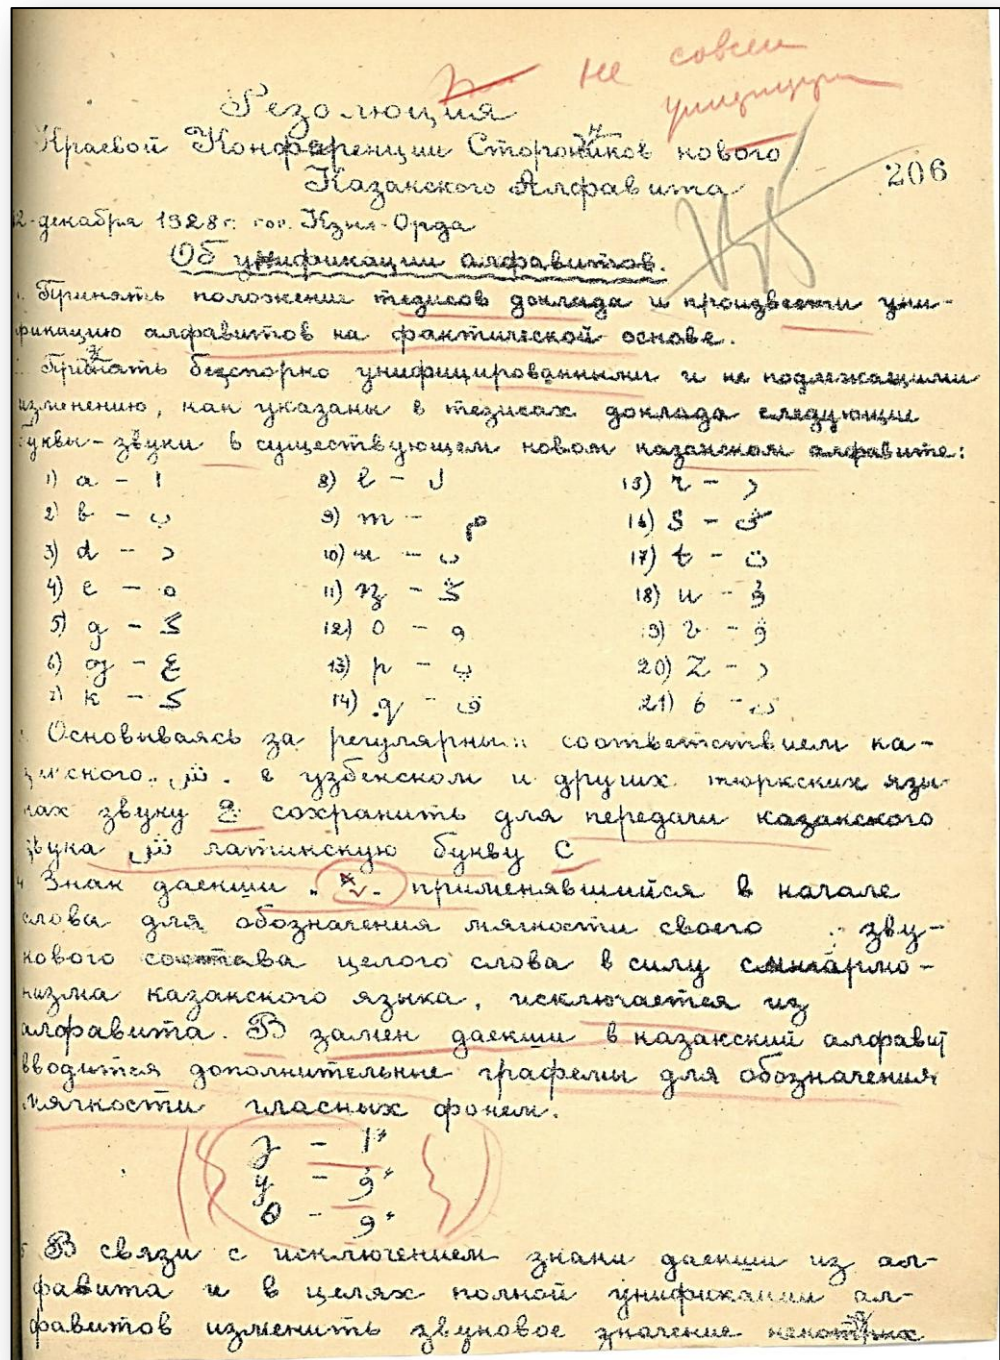 не совсем
Резолюция
Краевой Конференции Сторонников нового
Казакского Алфавита
206
12-декабря 1928 г. гор. Кзыл-Орда
Об унификации алфавитов.
Принять положении тезисов доклада и произвести уни-
фикацию алфавитов на фактической основе.
Признать безспорно унифицированными и не подлежащими
изменению, как указаны в тезисах доклада следующие
буквы-звуки в существующем новом казакском алфавите:
1) a - ا 8) l - ل 15) r - ر
2) b - ب 9) m - م 16) s - س
3) d - د 10) n - ن 17) t - ت
4) e - ە 11) ꞑ - ڭ 18) u - ۇ
5) g - گ 12) o - و 19) v - ۋ
6) ƣ - ع 13) p - پ 20) z - ز
7) k - ك 14) q - ق 21) ь - ى
Основываясь за регулярным соответствием ка-
закского ش в узбекском и других тюркских язы-
ках звуку сохранить для передачи казакского
звука ش латинскую букву C
4. Знак даекши применявшийся в начале
слова для обозначения мягкости своего зву-
кового состава целого слова в силу сингармо-
низма казакского языка, исключается из
алфавита. В замен даекши в казакский алфавит
вводится дополнительные графемы для обозначения
мягкости гласных фонем.
ə - اٴ
y - ۇٴ
ө - وٴ
5. В связи с исключением знаки даекши из ал-
фавита и в целях полной унификации ал-
фавитов изменить звуковое значение некоторых